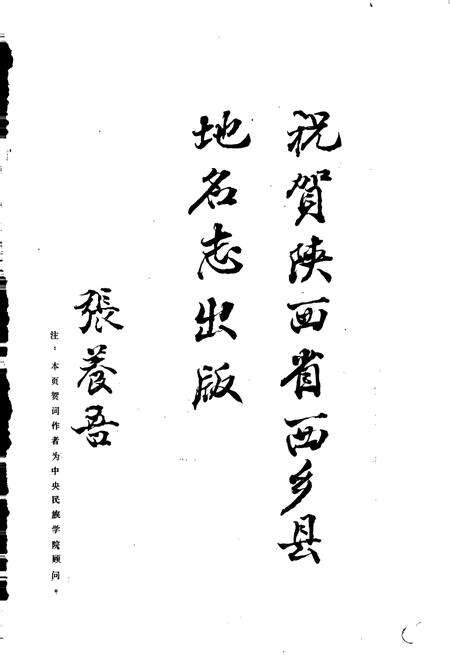 祝賀陕西省西乡县
地名志出版
張養吾
注：本页贺词作者为中央民族学院顾问。